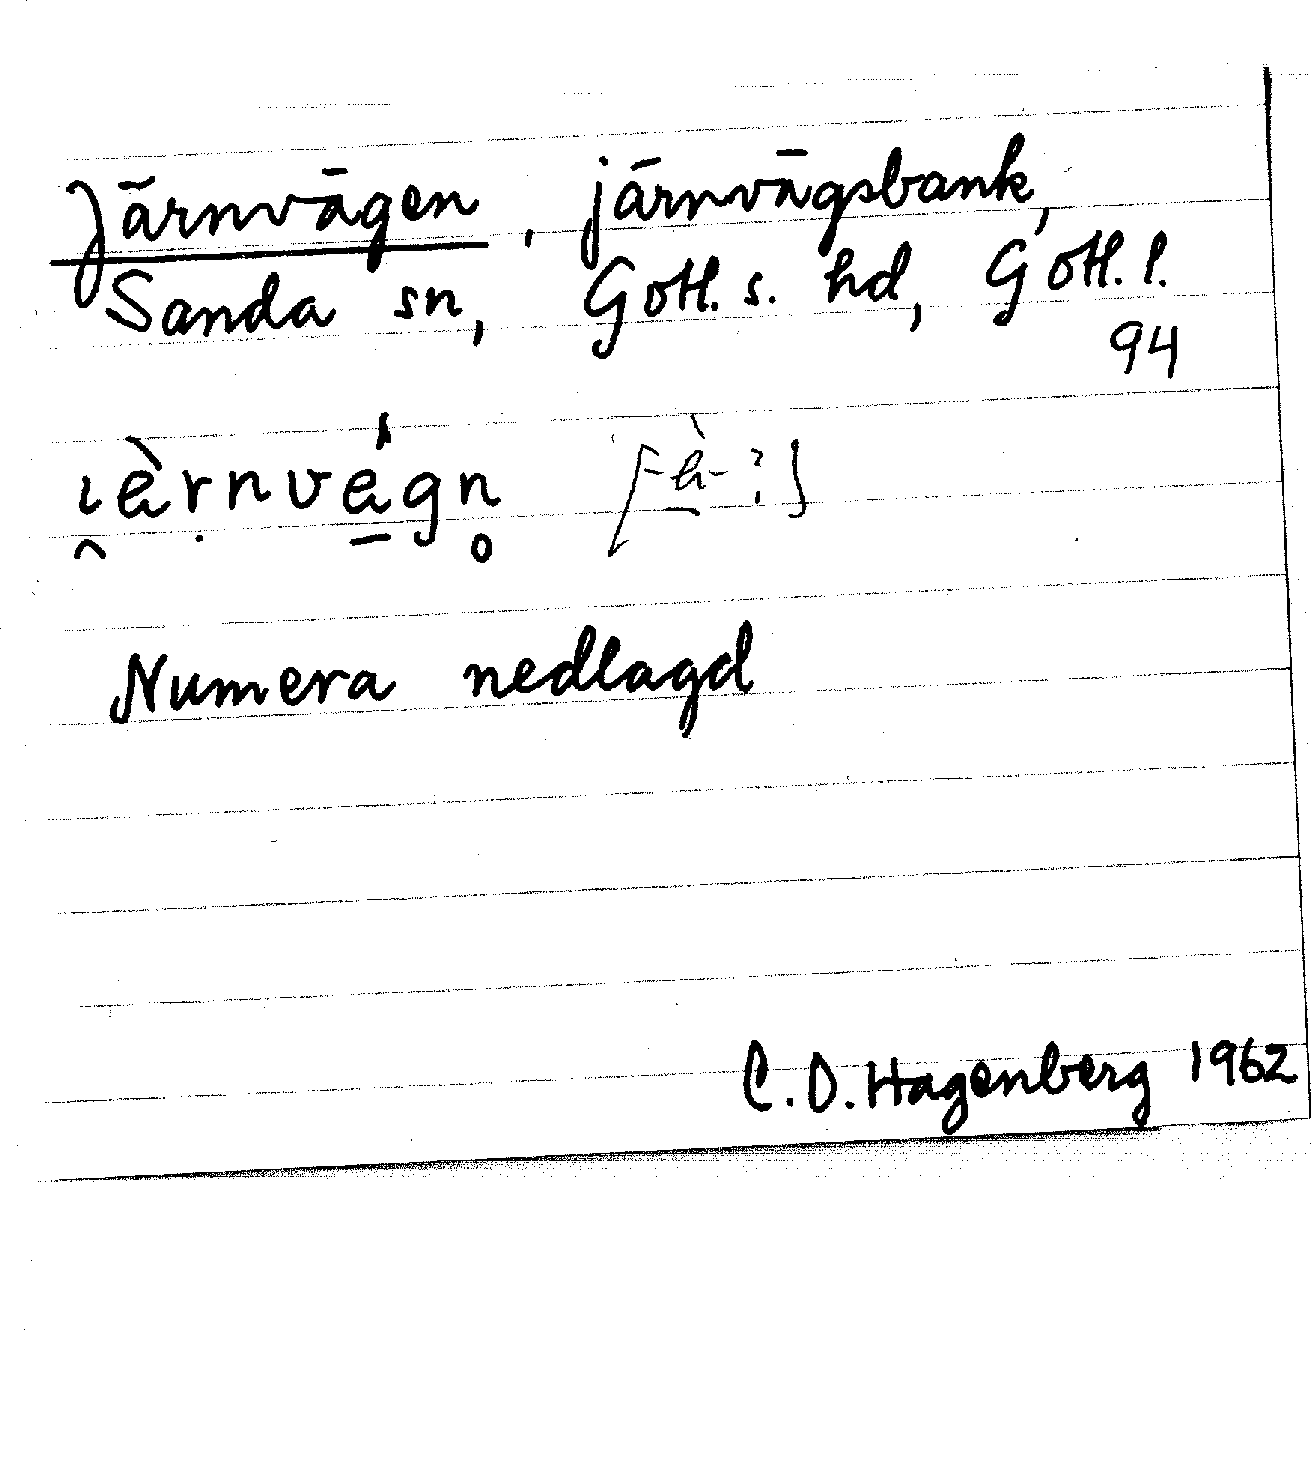 Järnvägen, järnvägsbank,
Sanda sn, Gotl. s. hd, Gotl. l.
94
Numera nedlagd
C. O. Hagenberg 1962